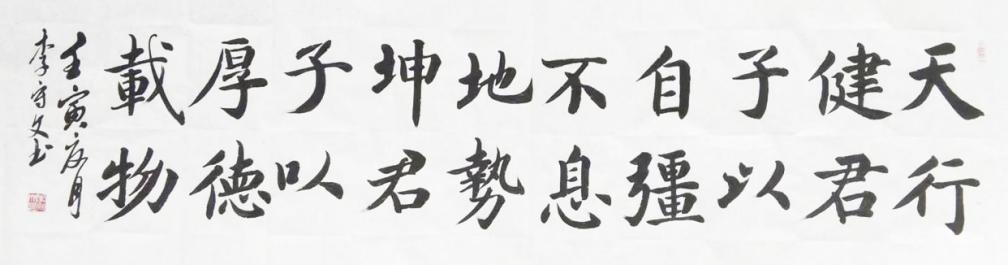 天行
健君
子以
自彊
不息
地勢
坤君
子以
厚德
載物
壬寅
李守文书